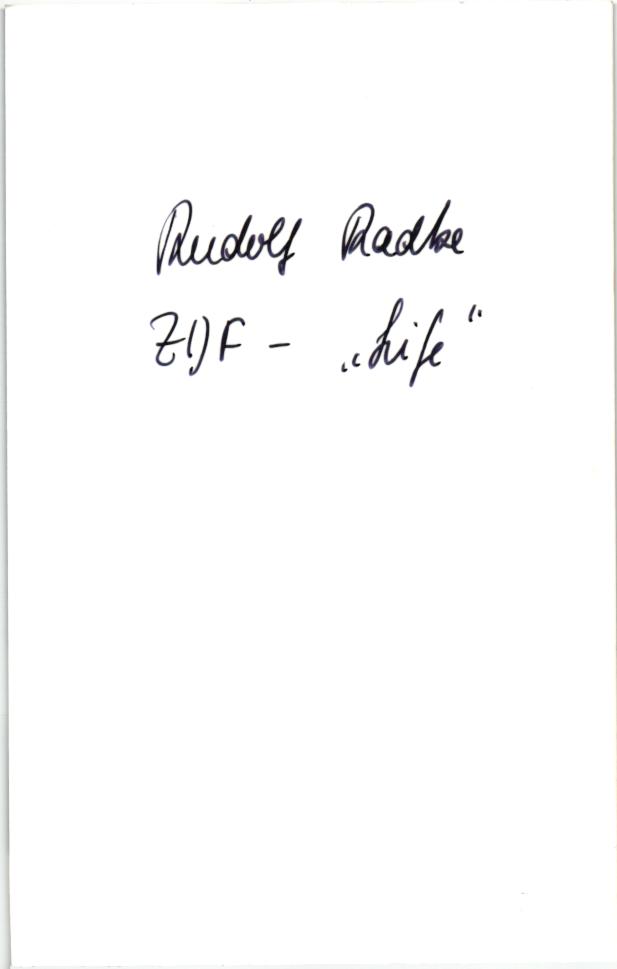 Rudolf Radke
ZDF - „Life“